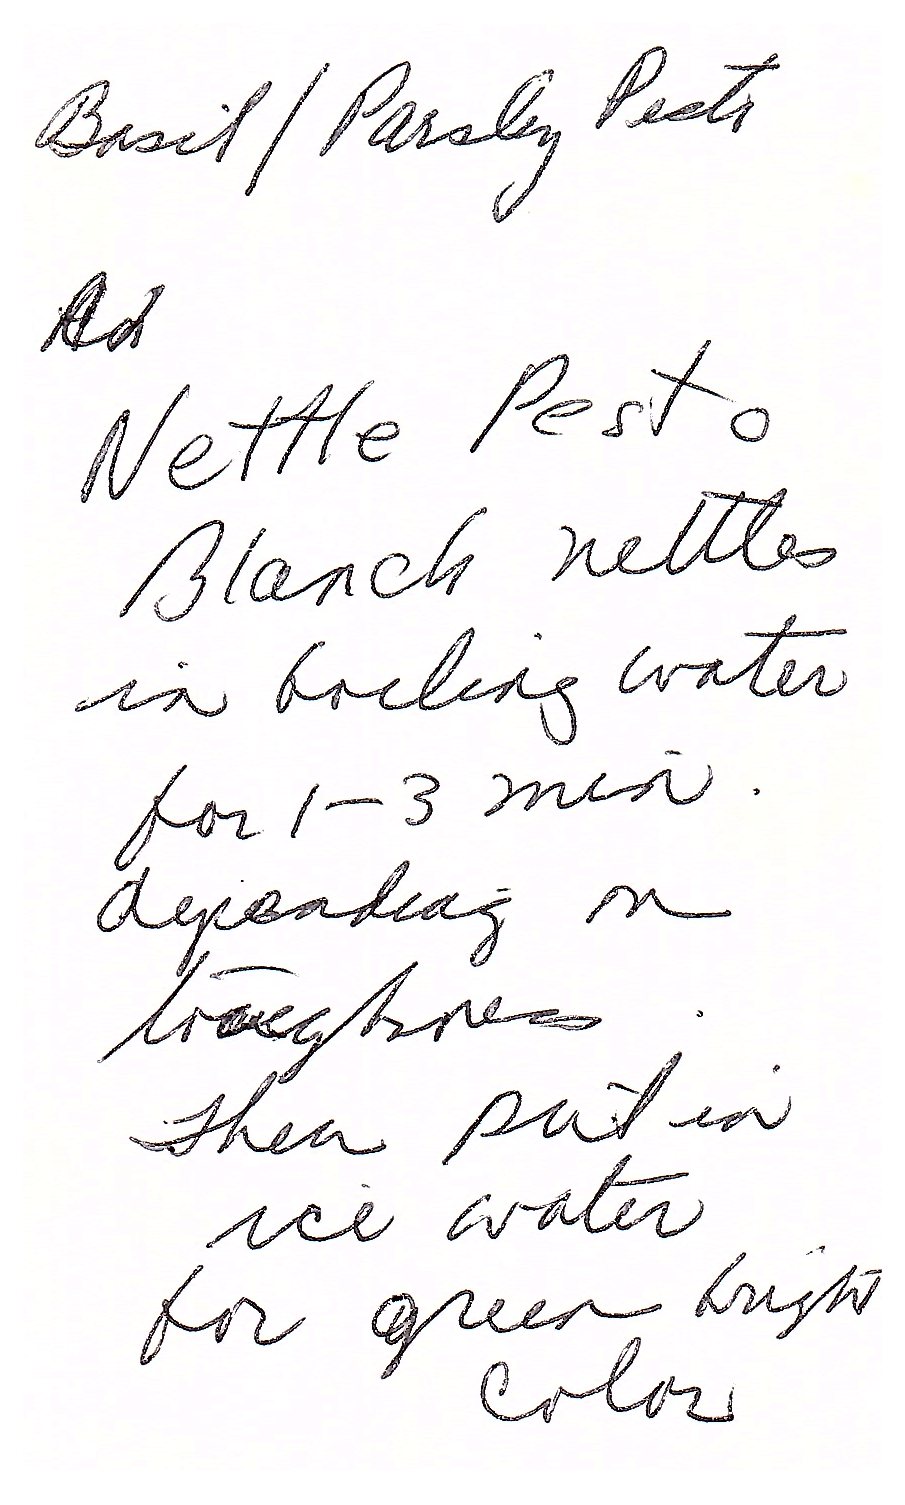 Basil / Parsley Pesto
Nettle Pesto
Blanch nettles
in boiling water
for 1-3 min.
depending on
toughness.
Then put in
ice water
for green bright
color